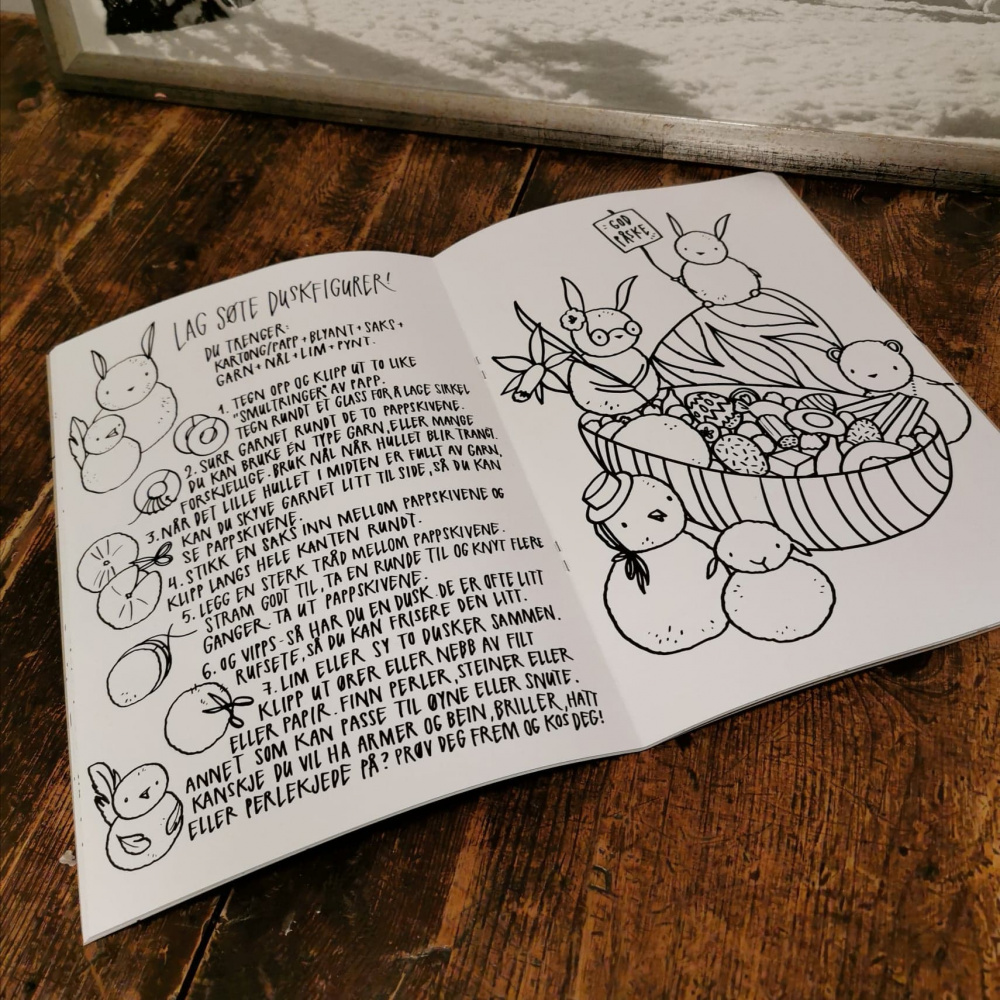 LAG SØTE DUSKFIGURER!
DU TRENGER:
KARTONG/PAPP + BLYANT + SAKS +
GARN + NÅL + LIM + PYNT.
1. TEGN OPP OG KLIPP UT TO LIKE
"SMULTRINGER" AV PAPP.
TEGN RUNDT ET GLASS FOR Å LAGE SIRKEL
2. SURR GARNET RUNDT DE TO PAPPSKIVENE.
DU KAN BRUKE ÉN TYPE GARN, ELLER MANGE
FORSKJELLIGE. BRUK NÅL NÅR HULLET BLIR TRANGT.
3. NÅR DET LILLE HULLET I MIDTEN ER FULLT AV GARN,
KAN DU SKYVE GARNET LITT TIL SIDE, SÅ DU KAN
SE PAPPSKIVENE.
4. STIKK EN SAKS INN MELLOM PAPPSKIVENE OG
KLIPP LANGS HELE KANTEN RUNDT.
5. LEGG EN STERK TRÅD MELLOM PAPPSKIVENE.
STRAM GODT TIL, TA EN RUNDE TIL OG KNYT FLERE
GANGER. TA UT PAPPSKIVENE.
6. OG VIPPS - SÅ HAR DU EN DUSK. DE ER OFTE LITT
RUFSETE, SÅ DU KAN FRISERE DEN LITT.
7. LIM ELLER SY TO DUSKER SAMMEN.
KLIPP UT ØRER ELLER NEBB AV FILT
ELLER PAPIR. FINN PERLER, STEINER ELLER
ANNET SOM KAN PASSE TIL ØYNE ELLER SNUTE.
KANSKJE DU VIL HA ARMER OG BEIN, BRILLER, HATT
ELLER PERLEKJEDE PÅ? PRØV DEG FREM OG KOS DEG!
GOD
PÅSKE